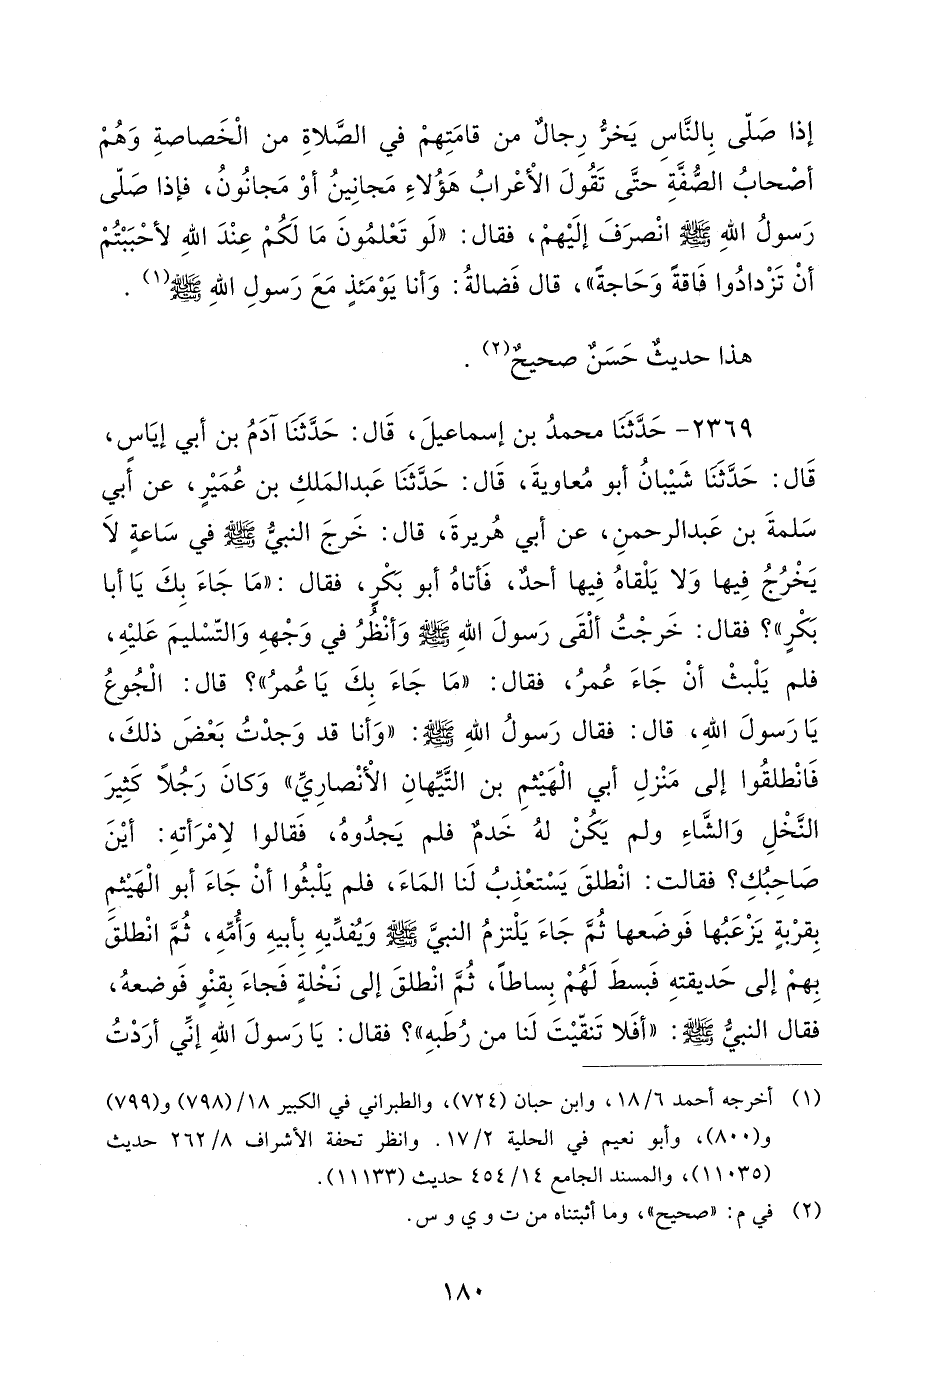 إذا صَلّى بِالنَّاسِ يَخرُّ رِجالٌ من قامَتِهِمْ في الصَّلاةِ من الْخَصاصةِ وَهُمْ
أصْحابُ الصُّفَّةِ حتَّى تَقُولَ الأعْرابُ هَؤُلاءِ مَجانِينُ أوْ مَجانُونُ، فإذا صَلّى
رَسولُ اللهِ ﷺ انْصرَفَ إلَيْهِمْ، فقال: «لَو تَعْلمُونَ مَا لَكُمْ عِنْدَ اللهِ لأحْبَبْتُمْ
أنْ تَزْدادُوا فَاقةً وَحَاجةً»، قال فَضالةُ: وَأنا يَوْمَئذٍ مَعَ رَسولِ اللهِ ﷺ(١) .
هذا حديثٌ حَسَنٌ صحيحٌ(٢) .
٢٣٦٩- حَدَّثَنَا محمدُ بن إسماعيلَ، قَال: حَدَّثَنَا آدَمُ بن أبي إيَاسٍ،
قَال: حَدَّثَنَا شَيْبانُ أبو مُعاويةَ، قَال: حَدَّثَنَا عَبدالمَلكِ بن عُمَيْرٍ، عن أبي
سَلمةَ بن عَبدالرحمنِ، عن أبي هُريرةَ، قال: خَرجَ النبيُّ ﷺ في سَاعةٍ لاَ
يَخْرُجُ فِيها وَلا يَلْقاهُ فِيها أحدٌ، فَأتاهُ أبو بَكْرٍ، فقال :«مَا جَاءَ بِكَ يَا أبا
بَكْرٍ»؟ فقال: خَرجْتُ ألْقَى رَسولَ اللهِ ﷺ وَأنْظُرُ في وَجْههِ وَالتّسْليمَ عَليْهِ،
فلم يَلْبثْ أنْ جَاءَ عُمرُ، فقال: «مَا جَاءَ بِكَ يَا عُمرُ»؟ قال: الْجُوعُ
يَا رَسولَ اللهِ، قال: فقال رَسولُ اللهِ ﷺ: «وَأنا قد وَجدْتُ بَعْضَ ذلكَ،
فَانْطلقُوا إلى مَنْزلِ أبي الْهَيْثمِ بن التَّيِّهانِ الأنْصاريِّ» وَكانَ رَجُلاً كَثِيرَ
النَّخْلِ وَالشَّاءِ ولم يَكُنْ لهُ خَدمٌ فلم يَجدُوهُ، فَقالوا لاِمْرَأتهِ: أيْنَ
صَاحِبُكِ؟ فقالت: انْطلقَ يَسْتعْذِبُ لَنا المَاءَ، فلم يَلْبثُوا أنْ جَاءَ أبو الْهَيْثمِ
بِقرْبةٍ يَزْعَبُها فَوضَعها ثُمَّ جَاءَ يَلْتزمُ النبيَّ ﷺ وَيُفدِّيهِ بِأبيهِ وَأُمِّهِ، ثُمَّ انْطلقَ
بِهمْ إلى حَديقتهِ فَبسطَ لَهُمْ بِساطاً، ثُمَّ انْطلقَ إلى نَخْلةٍ فَجاءَ بِقنْوٍ فَوضعهُ،
فقال النبيُّ ﷺ: «أفَلا تَنقّيْتَ لَنا من رُطَبهِ»؟ فقال: يَا رَسولَ اللهِ إنِّي أرَدْتُ
(١) أخرجه أحمد ١٨/٦، وابن حبان (٧٢٤)، والطبراني في الكبير ١٨/(٧٩٨) و(٧٩٩)
و(٨٠٠)، وأبو نعيم في الحلية ١٧/٢. وانظر تحفة الأشراف ٢٦٢/٨ حديث
(١١٠٣٥)، والمسند الجامع ٤٥٤/١٤ حديث (١١١٣٣).
(٢) في م: «صحيح»، وما أثبتناه من ت و ي و س.
١٨٠